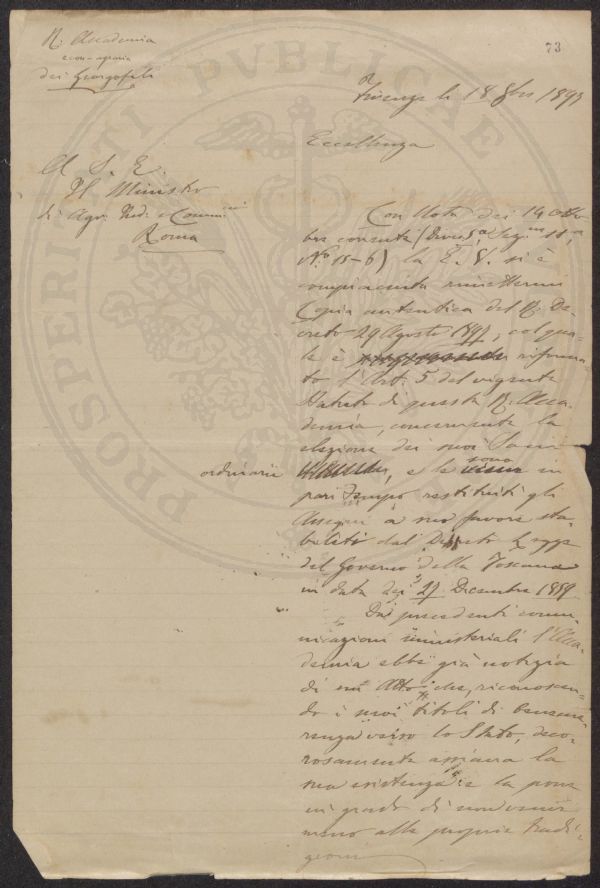 R. Accademia
econ-agraria
dei Georgofili
73
Firenze li 18 8bre 1897
Eccellenza
A S. E.
Il Ministro
di Agr. Ind. e Comm.
Roma
Con Nota dei 14 Otto-
bre corrente (Divis.
N.º 15-6) la E. V. si è
compiaciuta rimettermi
Copia autentica del R. De-
creto 29 Agosto 1897, col qua-
le è riforma-
to l'Art. 5 del vigente
Statuto di questa R. Acca-
demia, concernente la
elezione dei suoi Soci
ordinarii
, e le sono in
pari tempo restituiti gli
Assegni a suo favore sta-
biliti dal Decreto Legge
del Governo della Toscana
in data dei 27 Dicembre 1859.
Dai precedenti comu-
nicazioni ministeriali l'Acca-
demia ebbe già notizia
di un Atto che, riconoscen-
do i suoi titoli di beneme-
renza verso lo Stato, deco-
rosamente assicura la
sua esistenza e la pone
in grado di non venir
meno alle proprie tradi-
zioni
PROSPERITATI PUBLICAE